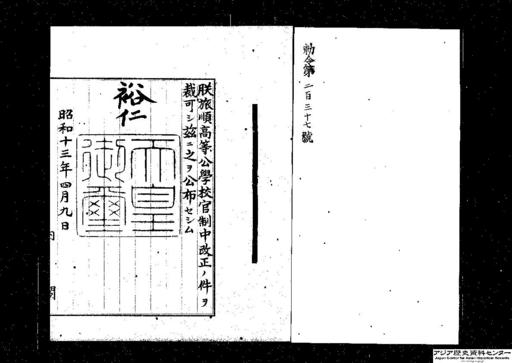 勅令第二百三十七號
朕旅順高等公學校官制中改正ノ件ヲ
裁可シ茲ニ之ヲ公布セシム
裕仁
天皇御璽
昭和十三年四月九日
内閣
アジア歴史資料センター
Japan Center for Asian Historical Records